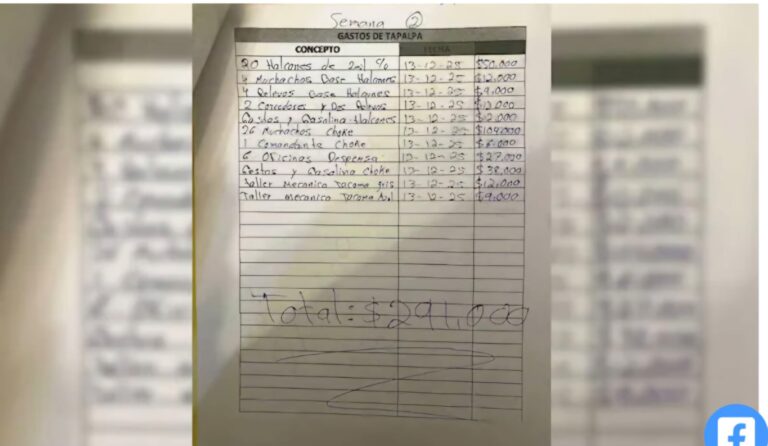 Semana 2
GASTOS DE TAPALPA
CONCEPTO FECHA
20 Halcones de 2mil % 13-12-25 $50,000
4 Muchachos Base Halcones 13-12-25 $12,000
4 Relevos Base Halcones 13-12-25 $9,000
2 Corredores y Dos Relevos 13-12-25 $12,000
Gastos y Gasolina Halcones 13-12-25 $12,000
26 Muchachos Choke 13-12-25 $104,000
1 Comandante Choke 13-12-25 $6,000
6 Oficinas Despensa 13-12-25 $27,000
Gastos y Gasolina Choke 13-12-25 $38,000
Taller Mecanico Tacoma Gris 13-12-25 $12,000
Taller Mecanico Tacoma 13-12-25 $9,000
Total: $291,000